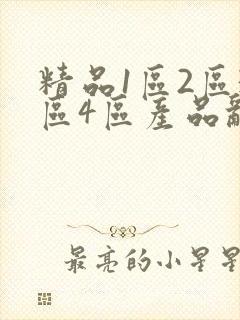 精品1区2区
区4区産品
最亮的小星星